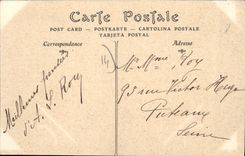 Carte Postale
POST CARD — POSTKARTE — CARTOLINA POSTALE
TARJETA POSTAL
Correspondance
Adresse
Meilleures pensées
d'A. L. Roy
Mr Mme Roy
93 rue Victor Hugo
Puteaux
Seine